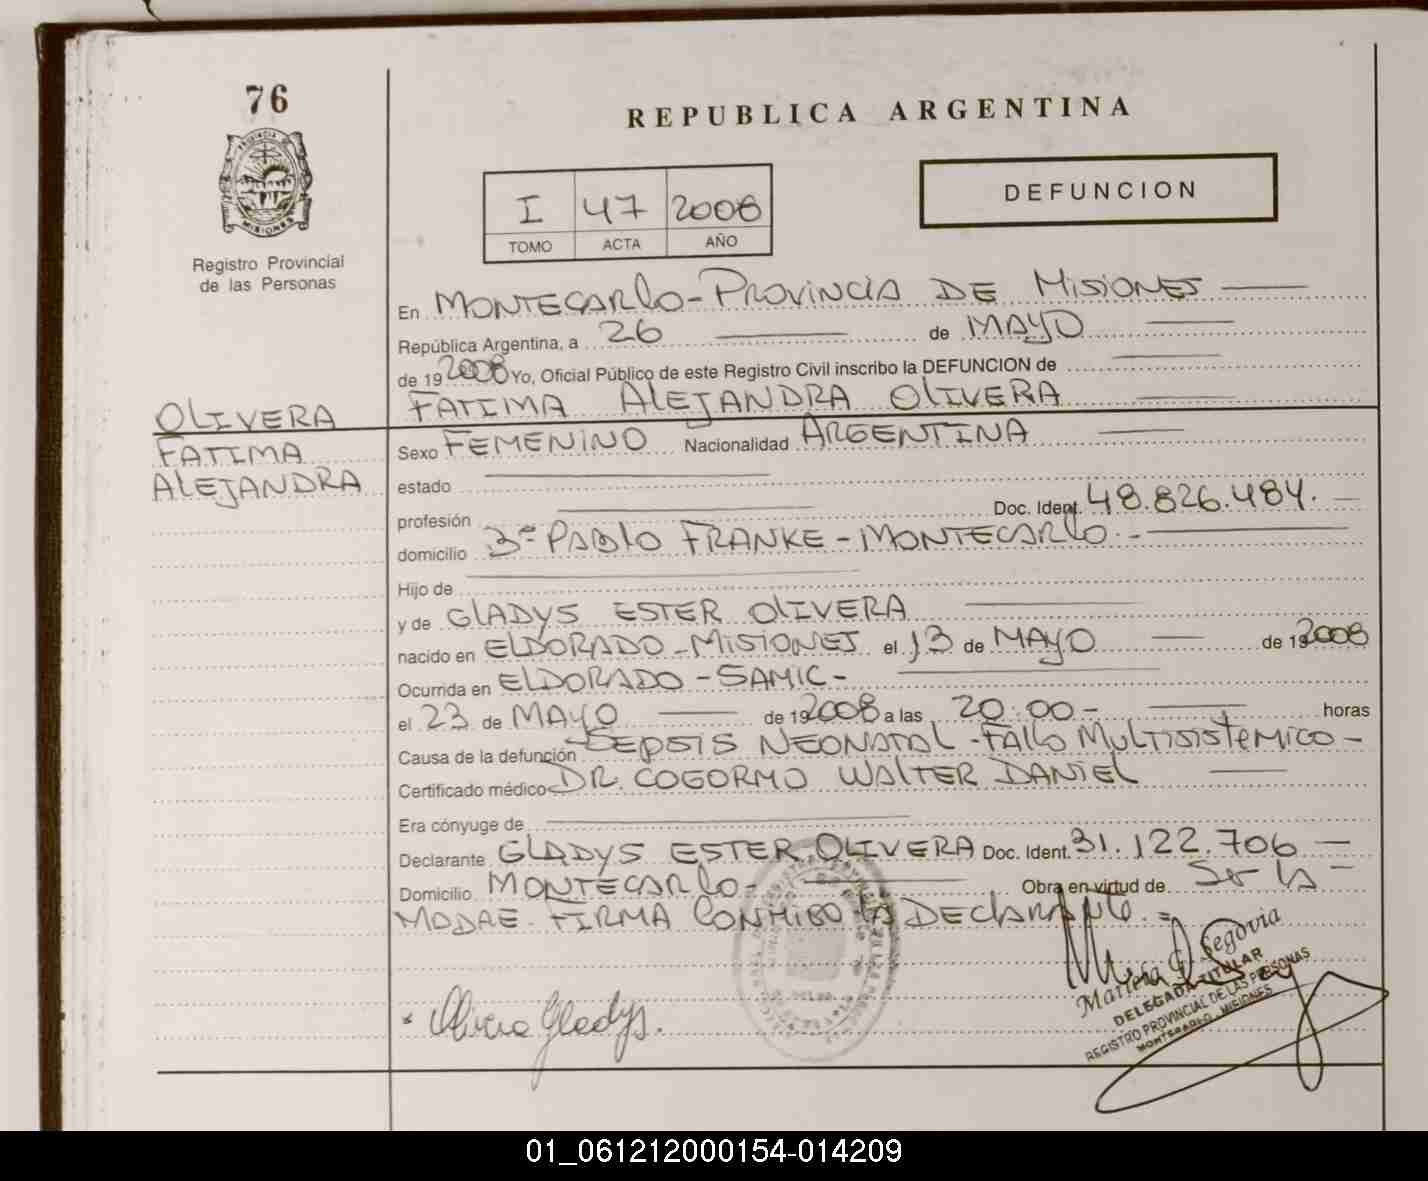 76
REPUBLICA ARGENTINA
PROVINCIA
MISIONES
Registro Provincial
de las Personas
I 47 2008
TOMO ACTA AÑO
DEFUNCION
En MONTECARLO - PROVINCIA DE MISIONES
República Argentina, a 26 de MAYO
de 19 2008 Yo, Oficial Público de este Registro Civil inscribo la DEFUNCION de
FATIMA ALEJANDRA OLIVERA
OLIVERA
FATIMA
ALEJANDRA
Sexo FEMENINO Nacionalidad ARGENTINA
estado
profesión Doc. Ident. 48.826.484. -
domicilio 3= PABLO FRANKE - MONTECARLO. -
Hijo de
y de GLADYS ESTER OLIVERA
nacido en ELDORADO - MISIONES el 13 de MAYO de 19 2008
Ocurrida en ELDORADO - SAMIC -
el 23 de MAYO de 19 2008 a las 20:00 - horas
Causa de la defunción SEPSIS NEONATAL - FALLO MULTISISTEMICO -
Certificado médico DR. COGORMO WALTER DANIEL
Era cónyuge de
Declarante GLADYS ESTER OLIVERA Doc. Ident. 31.122.706 -
Domicilio MONTECARLO - Obra en virtud de Ser la -
MADRE - FIRMA CONMIGO LA DECLARANTE. =
* Olivera Gladys.
Segovia
DELEGADA TITULAR
REGISTRO PROVINCIAL DE LAS PERSONAS
MONTECARLO - MISIONES
01_061212000154-014209